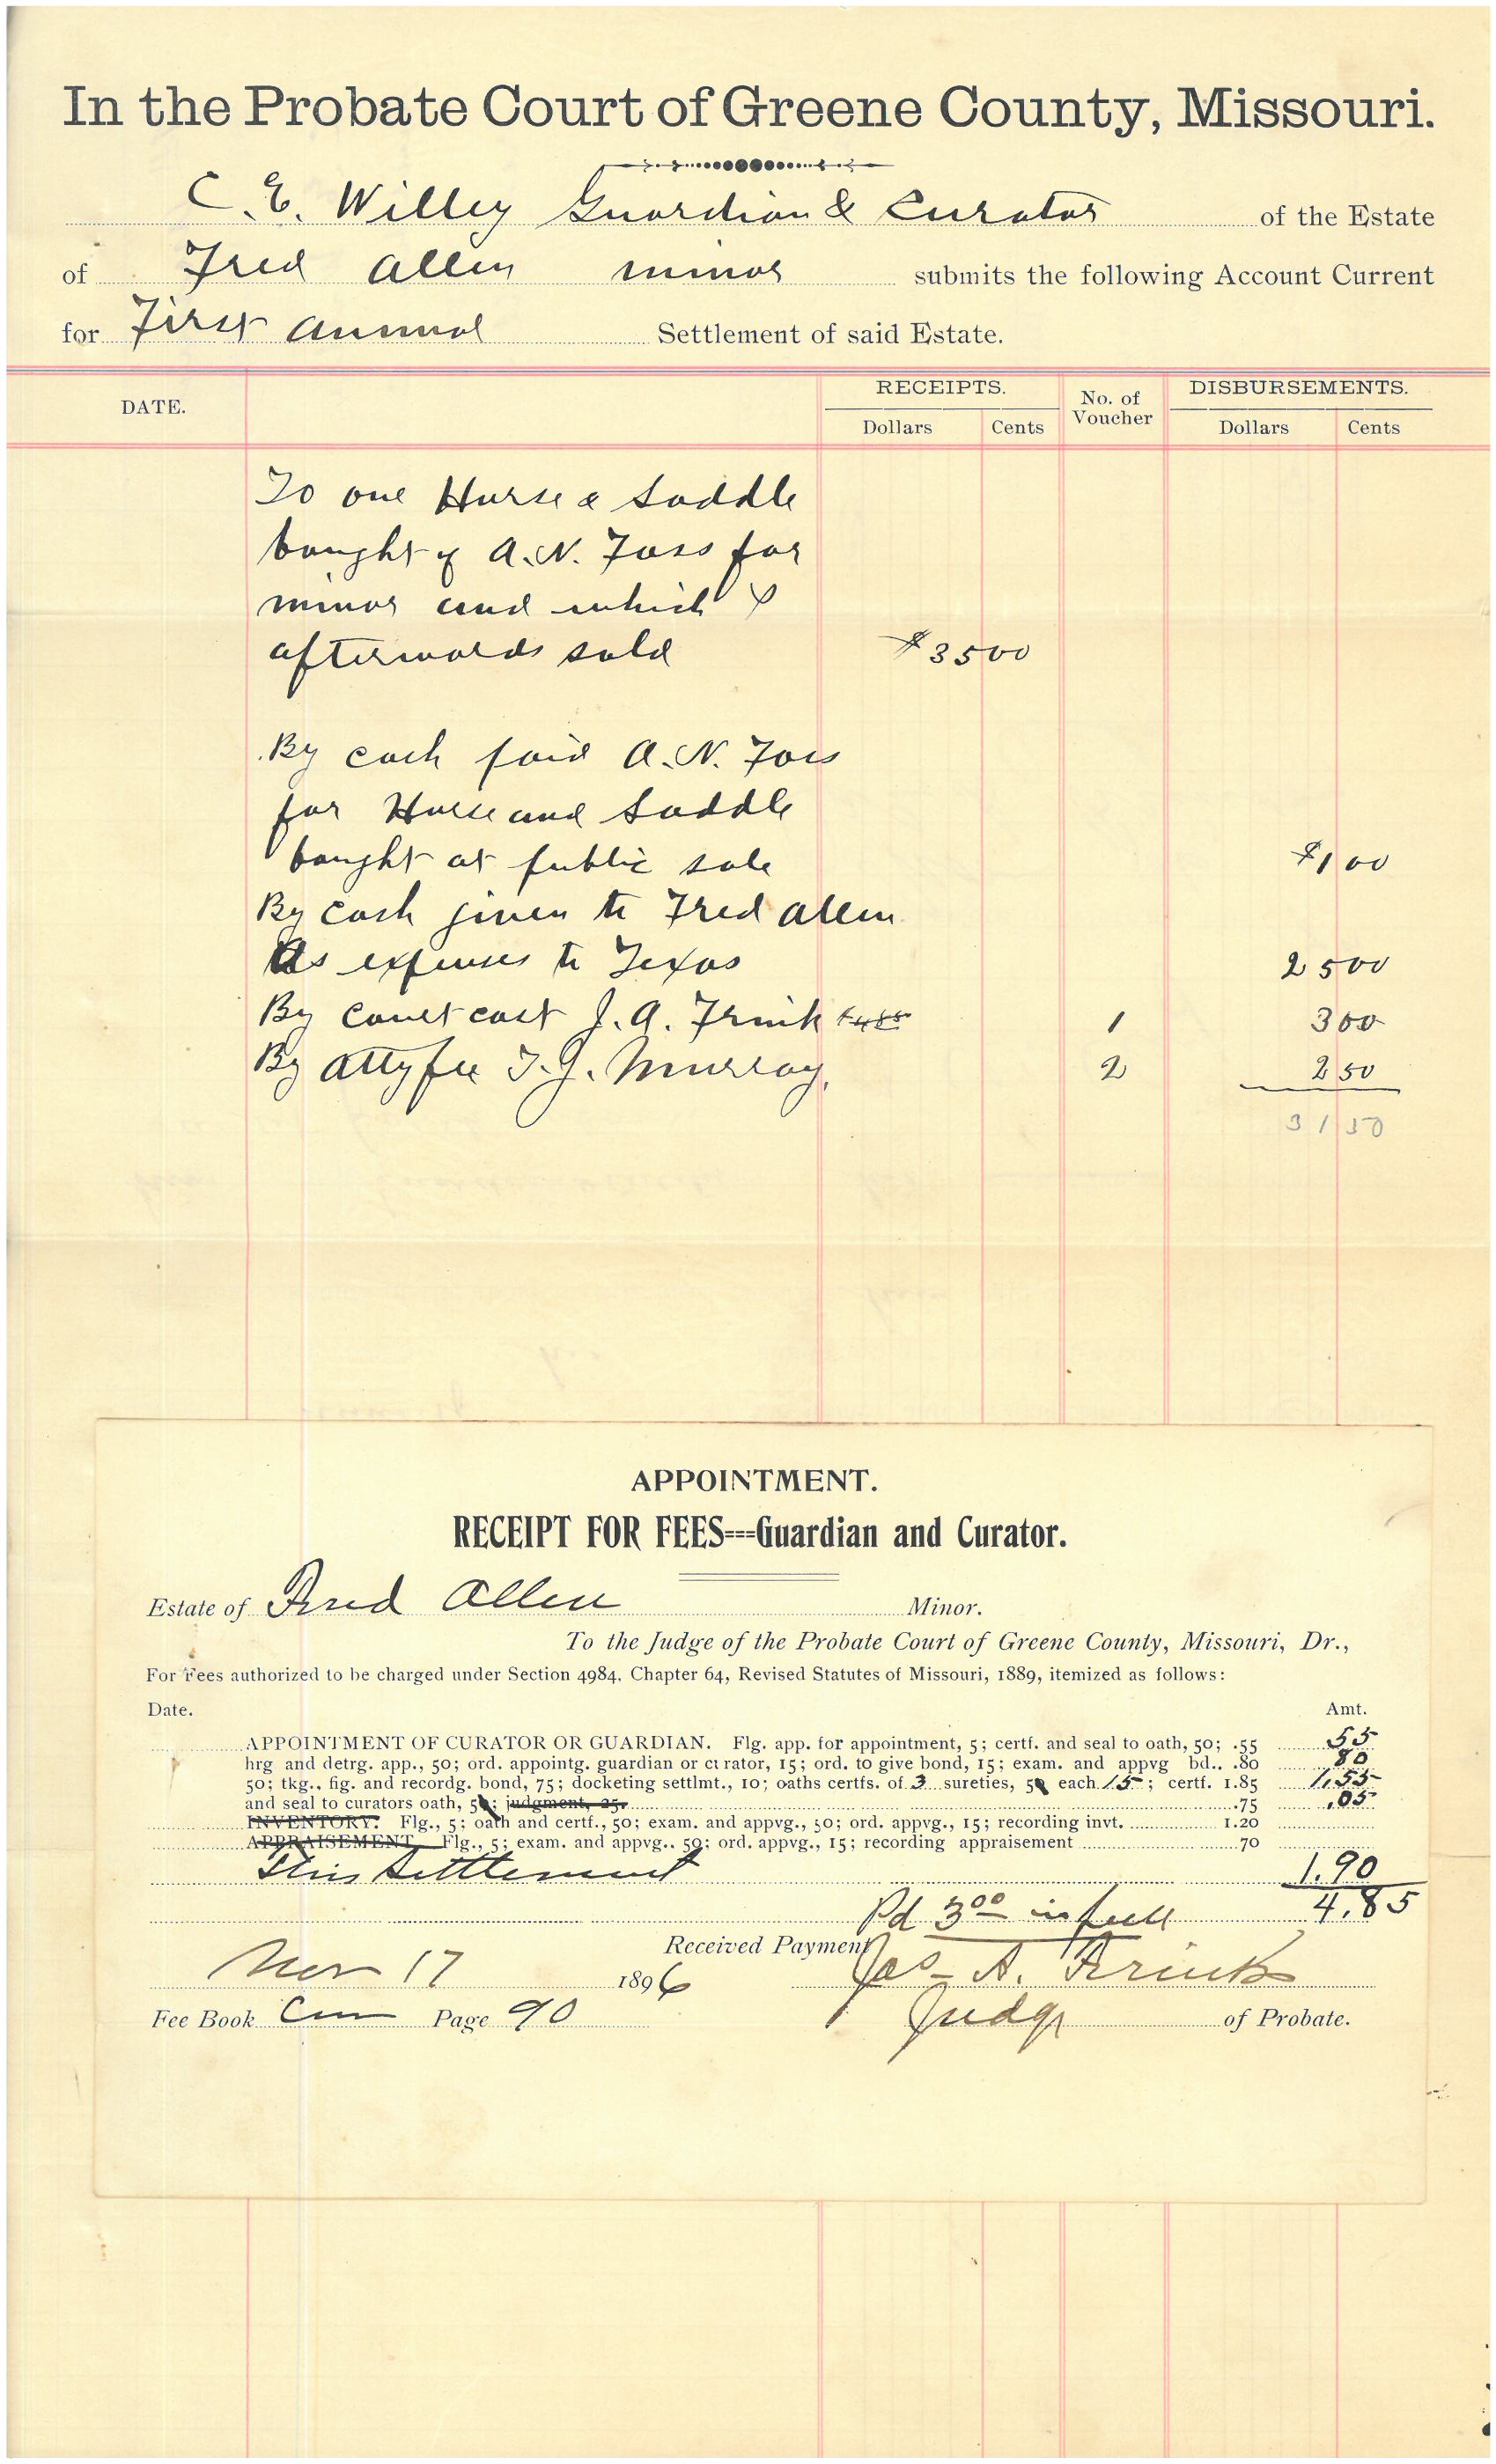 In the Probate Court of Greene County, Missouri.
C. E. Willey Guardian & Curator of the Estate
of Fred Allen minor submits the following Account Current
for First Annual Settlement of said Estate.
DATE. RECEIPTS. No. of Voucher DISBURSEMENTS.
Dollars Cents Dollars Cents
To one Horse & Saddle
bought of A. N. Foss for
minor and which I
afterwards sold $35 00
By cash paid A. N. Foss
for Horse and Saddle
bought at public sale $1 00
By cash given to Fred Allen
As expenses to Texas 25 00
By Court cost J. A. Frink 1 3 00
By Atty fee T. J. Murray, 2 2 50
31 50
APPOINTMENT.
RECEIPT FOR FEES---Guardian and Curator.
Estate of Fred Allen Minor.
To the Judge of the Probate Court of Greene County, Missouri, Dr.,
For Fees authorized to be charged under Section 4984. Chapter 64, Revised Statutes of Missouri, 1889, itemized as follows:
Date. Amt.
APPOINTMENT OF CURATOR OR GUARDIAN. Flg. app. for appointment, 5; certf. and seal to oath, 50; .55 55
hrg and detrg. app., 50; ord. appointg. guardian or curator, 15; ord. to give bond, 15; exam. and appvg bd.. .80 80
50; tkg., fig. and recordg. bond, 75; docketing settlmt., 10; oaths certfs. of 3 sureties, 5 each 15; certf. 1.85 1.55
and seal to curators oath, 5; judgment, 25. .75 .05
INVENTORY. Flg., 5; oath and certf., 50; exam. and appvg., 50; ord. appvg., 15; recording invt. 1.20
APPRAISEMENT Flg., 5; exam. and appvg.. 50; ord. appvg., 15; recording appraisement .70
This Settlement 1.90
Pd 3 00 in full 4.85
Received Payment
Nov 17 1896 Jas A. Frink
Fee Book Cur Page 90 Judge of Probate.